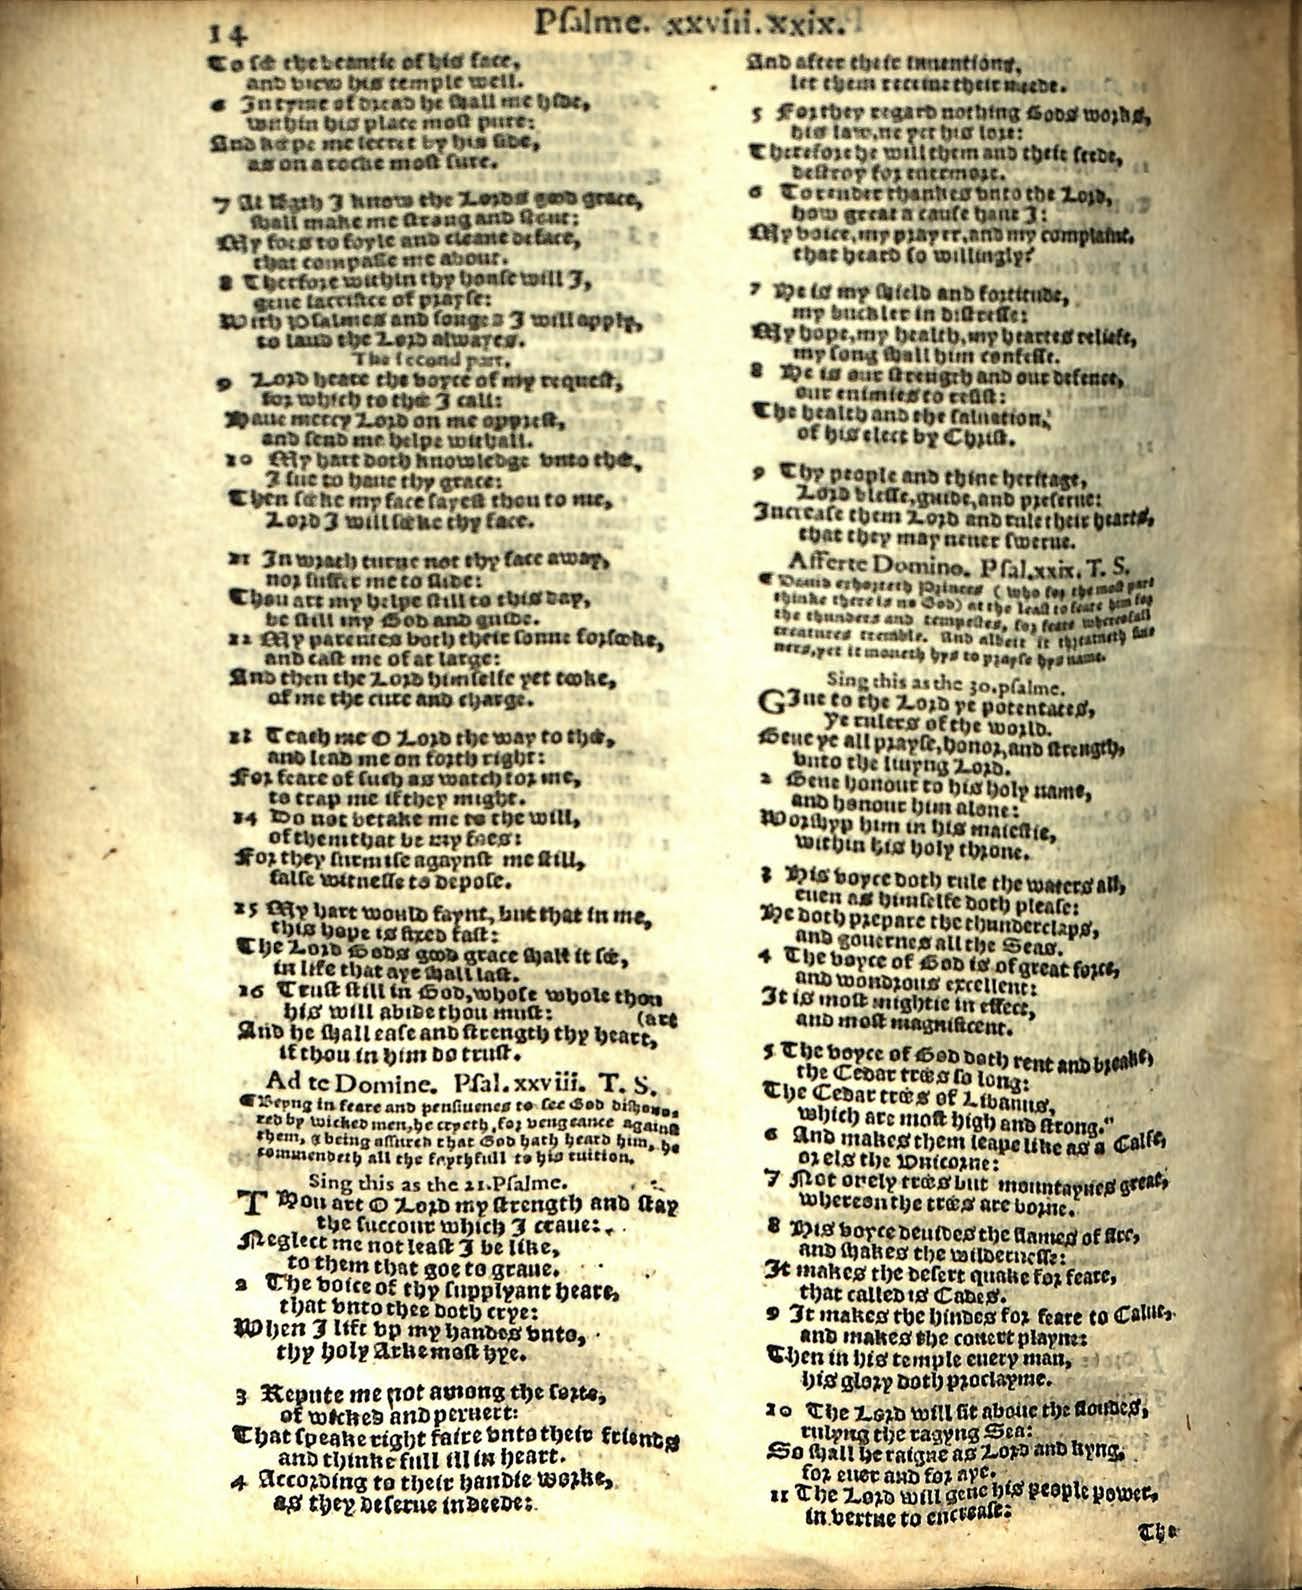 14
Psalme. xxviii. xxix.
To sée the beautie of his face,
and view his temple well.
6 In tyme of dread he shall me hide,
within his place most pure:
And kéepe me secret by his side,
as on a rocke most sure.
7 At lēgth I know the Lords good grace,
shall make me strong and stout:
My foes to foyle and cleane deface,
that compasse me about.
8 Therfore within thy house will I,
geue sacrifice of prayse:
With Psalmes and songes I will apply,
to laud the Lord alwayes.
The second part.
9 Lord heare the voyce of my request,
for which to thée I call:
Haue mercy Lord on me opprest,
and send me helpe withall.
10 My hart doth knowledge vnto thée,
I sue to haue thy grace:
Then séeke my face sayest thou to me,
Lord I will séeke thy face.
11 In wrath turne not thy face away,
nor suffer me to slide:
Thou art my helpe still to this day,
be still my God and guide.
12 My parentes both their sonne forsooke,
and cast me of at large:
And then the Lord himselfe yet tooke,
of me the cure and charge.
13 Teach me O Lord the way to thée,
and lead me on forth right:
For feare of such as watch for me,
to trap me if they might.
14 Do not betake me to the will,
of them that be my foes:
For they surmise agaynst me still,
false witnesse to depose.
15 My hart would faynt, but that in me,
this hope is fixed fast:
The Lord Gods good grace shall it sée,
in life that aye shall last.
16 Trust still in God, whose whole thou
his will abide thou must: (art
And he shall ease and strength thy heart,
if thou in him do trust.
Ad te Domine. Psal. xxviii. T. S.
¶ Beyng in feare and pensiuenes to see God dishono-
red by wicked men, he cryeth, for vengeance against
them, & being assured that God hath heard him, he
commendeth all the faythfull to his tuition.
Sing this as the 21. Psalme.
THou art O Lord my strength and stay
the succour which I craue:
Neglect me not least I be like,
to them that goe to graue.
2 The voice of thy supplyant heare,
that vnto thee doth crye:
When I lift vp my handes vnto,
thy holy Arke most hye.
3 Repute me not among the sorte,
of wicked and peruert:
That speake right faire vnto their friends
and thinke full ill in heart.
4 According to their handie worke,
as they deserue indeede:
And after their inuentions,
let them receiue their méede.
5 For they regard nothing Gods works,
his law, ne yet his lore:
Therefore he will them and their seede,
destroy for euermore.
6 To render thankes vnto the Lord,
how great a cause haue I:
My voice, my prayer, and my complaint,
that heard so willingly?
7 He is my shield and fortitude,
my buckler in distresse:
My hope, my health, my heartes reliefe,
my song shall him confesse.
8 He is our strength and our defence,
our enimies to resist:
The health and the saluation,
of his elect by Christ.
9 Thy people and thine heritage,
Lord blesse, guide, and preserue:
Increase them Lord and rule their hearts,
that they may neuer swerue.
Afferte Domino. Psal. xxix. T. S.
¶ Dauid exhorteth Princes (who for the most part
thinke there is no God) at the least to feare him for
the thunders and tempestes, for feare whereof all
creatures tremble. And albeit it threatneth sin-
ners, yet it moueth hys to prayse hys name.
Sing this as the 30. psalme.
GIue to the Lord ye potentates,
ye rulers of the world.
Geue ye all prayse, honor, and strength,
vnto the liuyng Lord.
2 Geue honour to his holy name,
and honour him alone:
Worshyp him in his maiestie,
within his holy throne.
3 His voyce doth rule the waters all,
euen as himselfe doth please:
He doth prepare the thunderclaps,
and gouernes all the Seas.
4 The voyce of God is of great force,
and wondrous excellent:
It is most mightie in effect,
and most magnificent.
5 The voyce of God doth rent and breake,
the Cedar trées so long:
The Cedar trées of Libanus,
which are most high and strong.
6 And makes them leape like as a Calfe,
or els the Vnicorne:
7 Not onely trées but mountaynes great,
whereon the trées are borne.
8 His voyce deuides the flames of fire,
and shakes the wildernesse:
It makes the desert quake for feare,
that called is Cades.
9 It makes the hindes for feare to Calue,
and makes the couert playne:
Then in his temple euery man,
his glory doth proclayme.
10 The Lord will sit aboue the floudes,
rulyng the ragyng Sea:
So shall he raigne as Lord and kyng,
for euer and for aye.
11 The Lord will geue his people power,
in vertue to encrease:
The